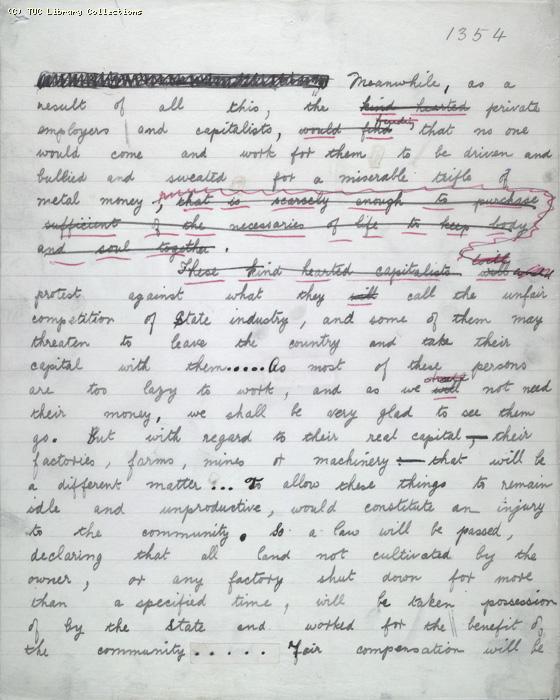 (C) TUC Library Collections
1354
Meanwhile, as a
result of all this, the kind hearted private
employers and capitalists, would find finding that no one
would come and work for them to be driven and
bullied and sweated for a miserable trifle of
metal money, that is scarcely enough to purchase
sufficient of the necessaries of life to keep body
and soul together.
These kind hearted capitalists will
protest against what they will call the unfair
competition of State industry, and some of them may
threaten to leave the country and take their
capital with them.....As most of these persons
are too lazy to work, and as we will should not need
their money, we shall be very glad to see them
go. But with regard to their real capital — their
factories, farms, mines or machinery — that will be
a different matter... To allow these things to remain
idle and unproductive, would constitute an injury
to the community. So a law will be passed,
declaring that all land not cultivated by the
owner, or any factory shut down for more
than a specified time, will be taken possession
of by the State and worked for the benefit of
the community ..... Fair compensation will be